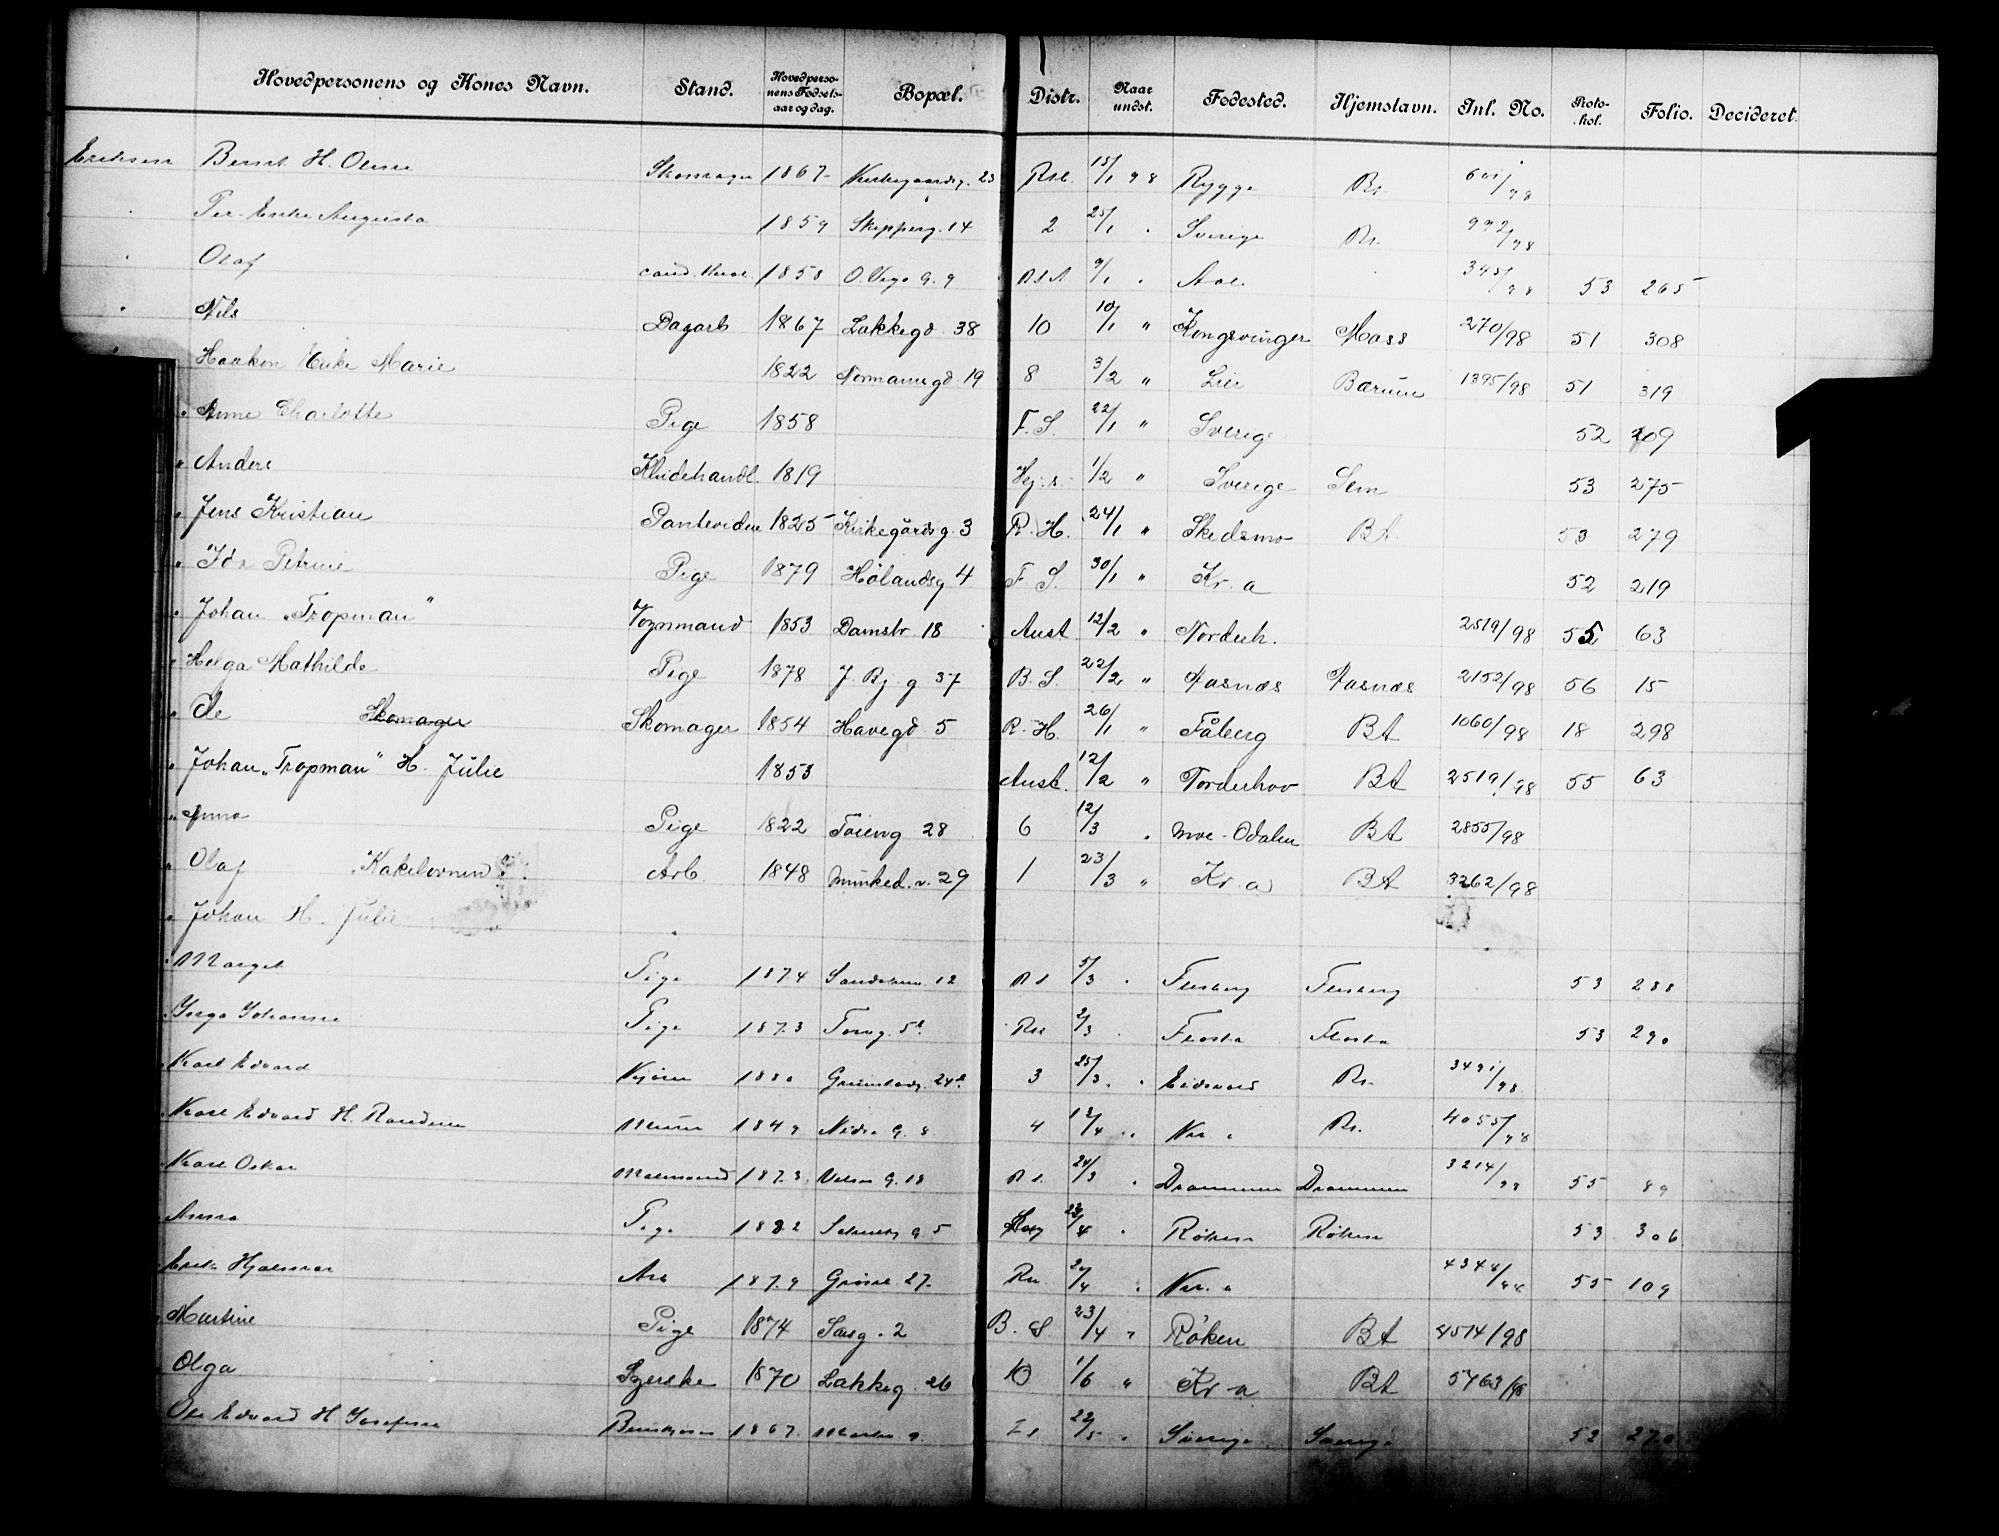 Hovedpersonens og Kones Navn. Stand. Hovedpersonens Fødselsaar og dag. Bopæl. Distr. Naar undst. Fødested. Hjemstavn. Inl. No. Protokol. Folio. Decideret.
Eriksen Bernt H. Oline Skomager 1867 Kirkegaardsg. 23 Rst. 15/1 98 Rygge Bt. 601/98
Per Enke Augusta 1859 Skipperg. 14 2 25/1 Sverige Bt. 992/98
Olaf cand. 1858 O. Voge G. 9 9/1 345/98 53 265
Nils Dagarb 1867 Lakkegd 38 10 10/1 " Kongsvinger Moss 270/98 51 308
Haakon Enke Marie 1822 Normannsgd. 19 8 3/2 " Lier Bærum 1395/98 51 319
" Anne Charlotte Pige 1858 F. S. 22/1 " Sverige 52 209
" Anders Kludehandl. 1819 Hj. s. 1/2 " Sverige Sem 53 275
" Jens Kristian 1825 Kirkegårdsg. 3 R. H. 24/1 " Skedsmo Bt. 53 279
" Ida Petrine Pige 1879 Hølandsg 4 F. S. 30/1 " Kr. a 52 219
" Johan „Tropman" Vognmand 1853 Damstr 18 Aust 12/2 " Norderh. 2519/98 55 63
" Helga Mathilde Pige 1878 J. Bj. g 37 B. S. 22/2 " Aasnæs Aasnæs 2152/98 56 15
" Ole Skomager Skomager 1854 Havegd. 5 R. H. 26/1 " Fåberg Bt 1060/98 18 298
" Johan „Tropman" H. Julie 1853 Aust. 12/2 " Norderhov Bt 2519/98 55 63
" Anna Pige 1822 Tøieng 28 6 12/3 " Odalen Bt 2855/98
" Olaf Kakelovnen Arb. 1848 Munked. v. 29 1 23/3 " Kr. a Bt 3262/98
" Johan H. Julie
" Marget Pige 1874 12 5/3 Flesberg Flesberg 53 288
" Inga Johanne Pige 1873 Torvg. 2/3 Flosta Flosta 53 290
" Karl Edvard Kjører 1880 3 25/3 Eidsvold Bt. 3491/98
" Karl Edvard H. Murer 1849 G. 8 4 12/4 " Kr. a Bt. 4055/98
" Karl Oskar 1873 G. 18 24/3 Drammen Drammen 3214/98 55 89
" Anna Pige 1882 g. 5 23/4 Røken Røken 53 306
" Erik Hjalmar Arb 1879 Grønl 27 Rst. 2/4 Kr. a 55 109
" Martine Pige 1874 Sarsg. 2 B. S. 23/4 " Røken Bt 4514/98
Olga Syerske 1870 Lakkeg. 26 10 1/6 " Kr. a Bt 5463/98
Ole Edvard H. Josefine 1867 22/5 Sverige Sverige 52 270